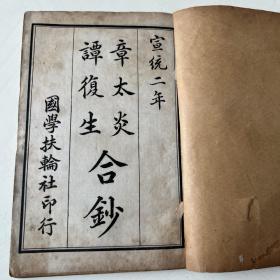 宣統二年
章太炎
譚復生
合鈔
國學扶輪社印行